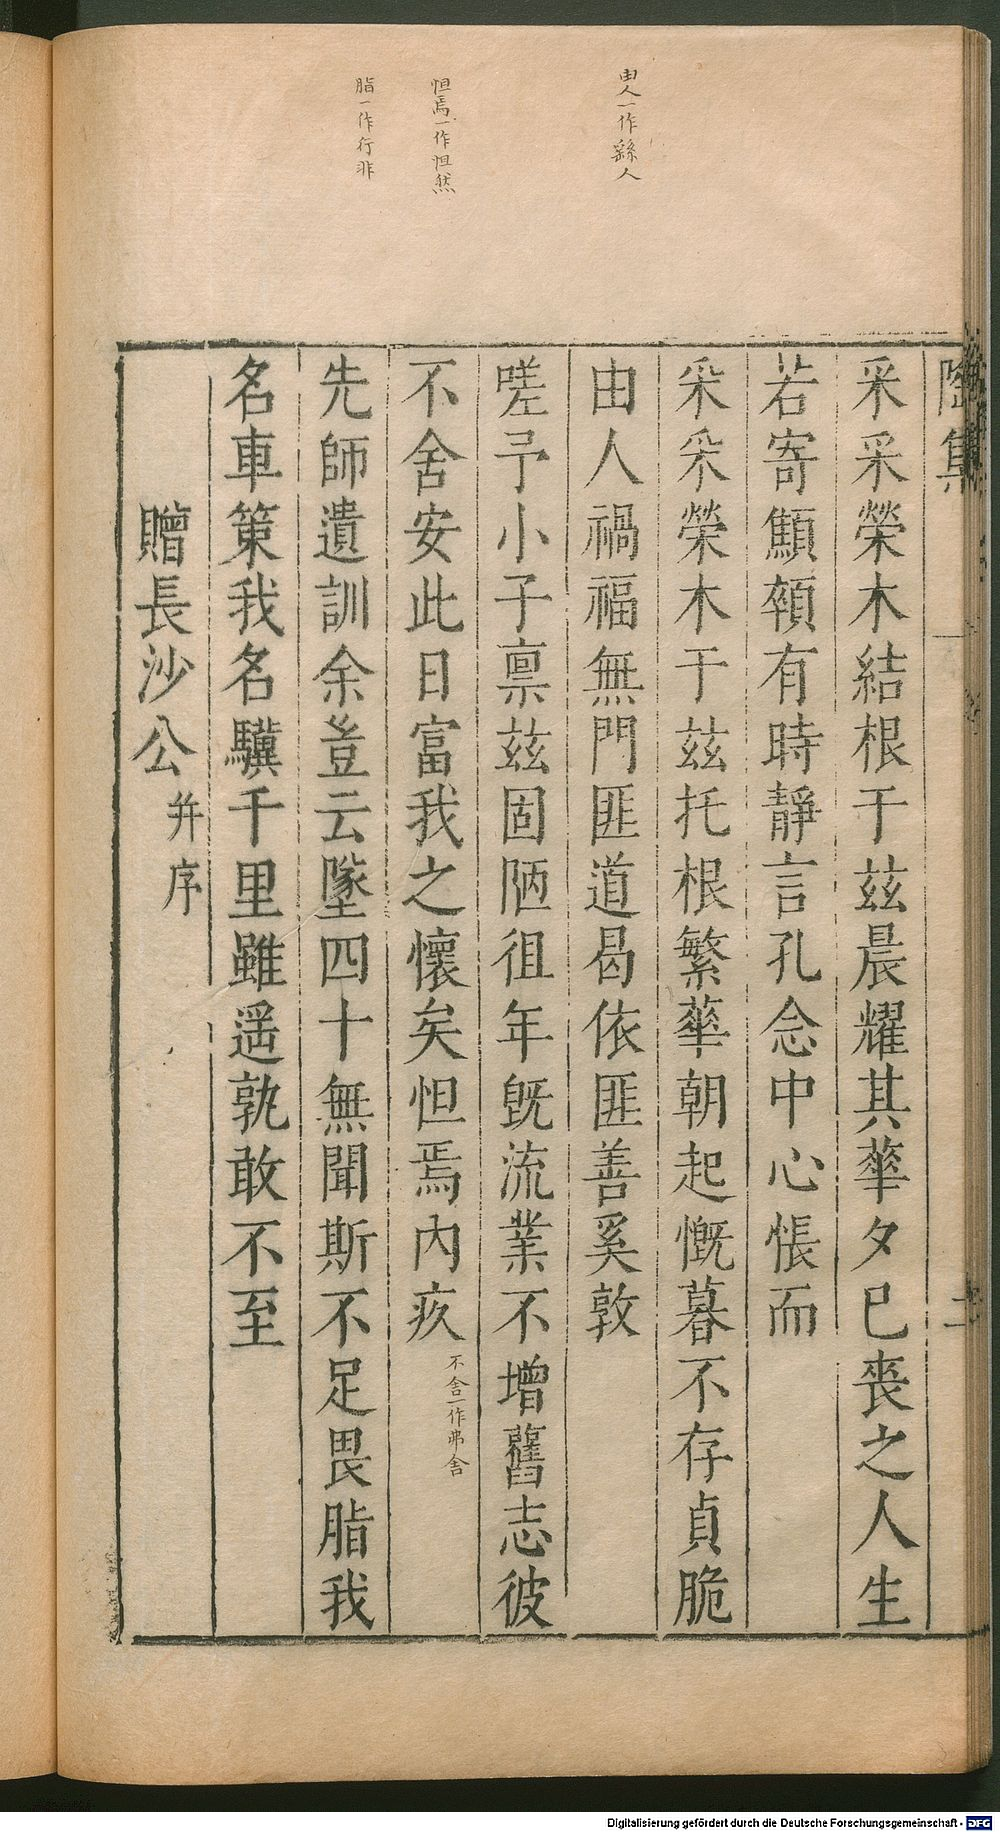 由人一作繇人
怛焉一作怛然
脂一作行非
陶集
二
采采榮木結根于茲晨耀其華夕已喪之人生
若寄顦顇有時靜言孔念中心悵而
采采榮木于茲托根繁華朝起慨暮不存貞脆
由人禍福無門匪道曷依匪善奚敦
嗟予小子禀茲固陋徂年旣流業不增舊志彼
不舍安此日富我之懷矣怛焉內疚
不舍一作弗舍
先師遺訓余豈云墜四十無聞斯不足畏脂我
名車策我名驥千里雖遥孰敢不至
贈長沙公并序
Digitalisierung gefördert durch die Deutsche Forschungsgemeinschaft - DFG